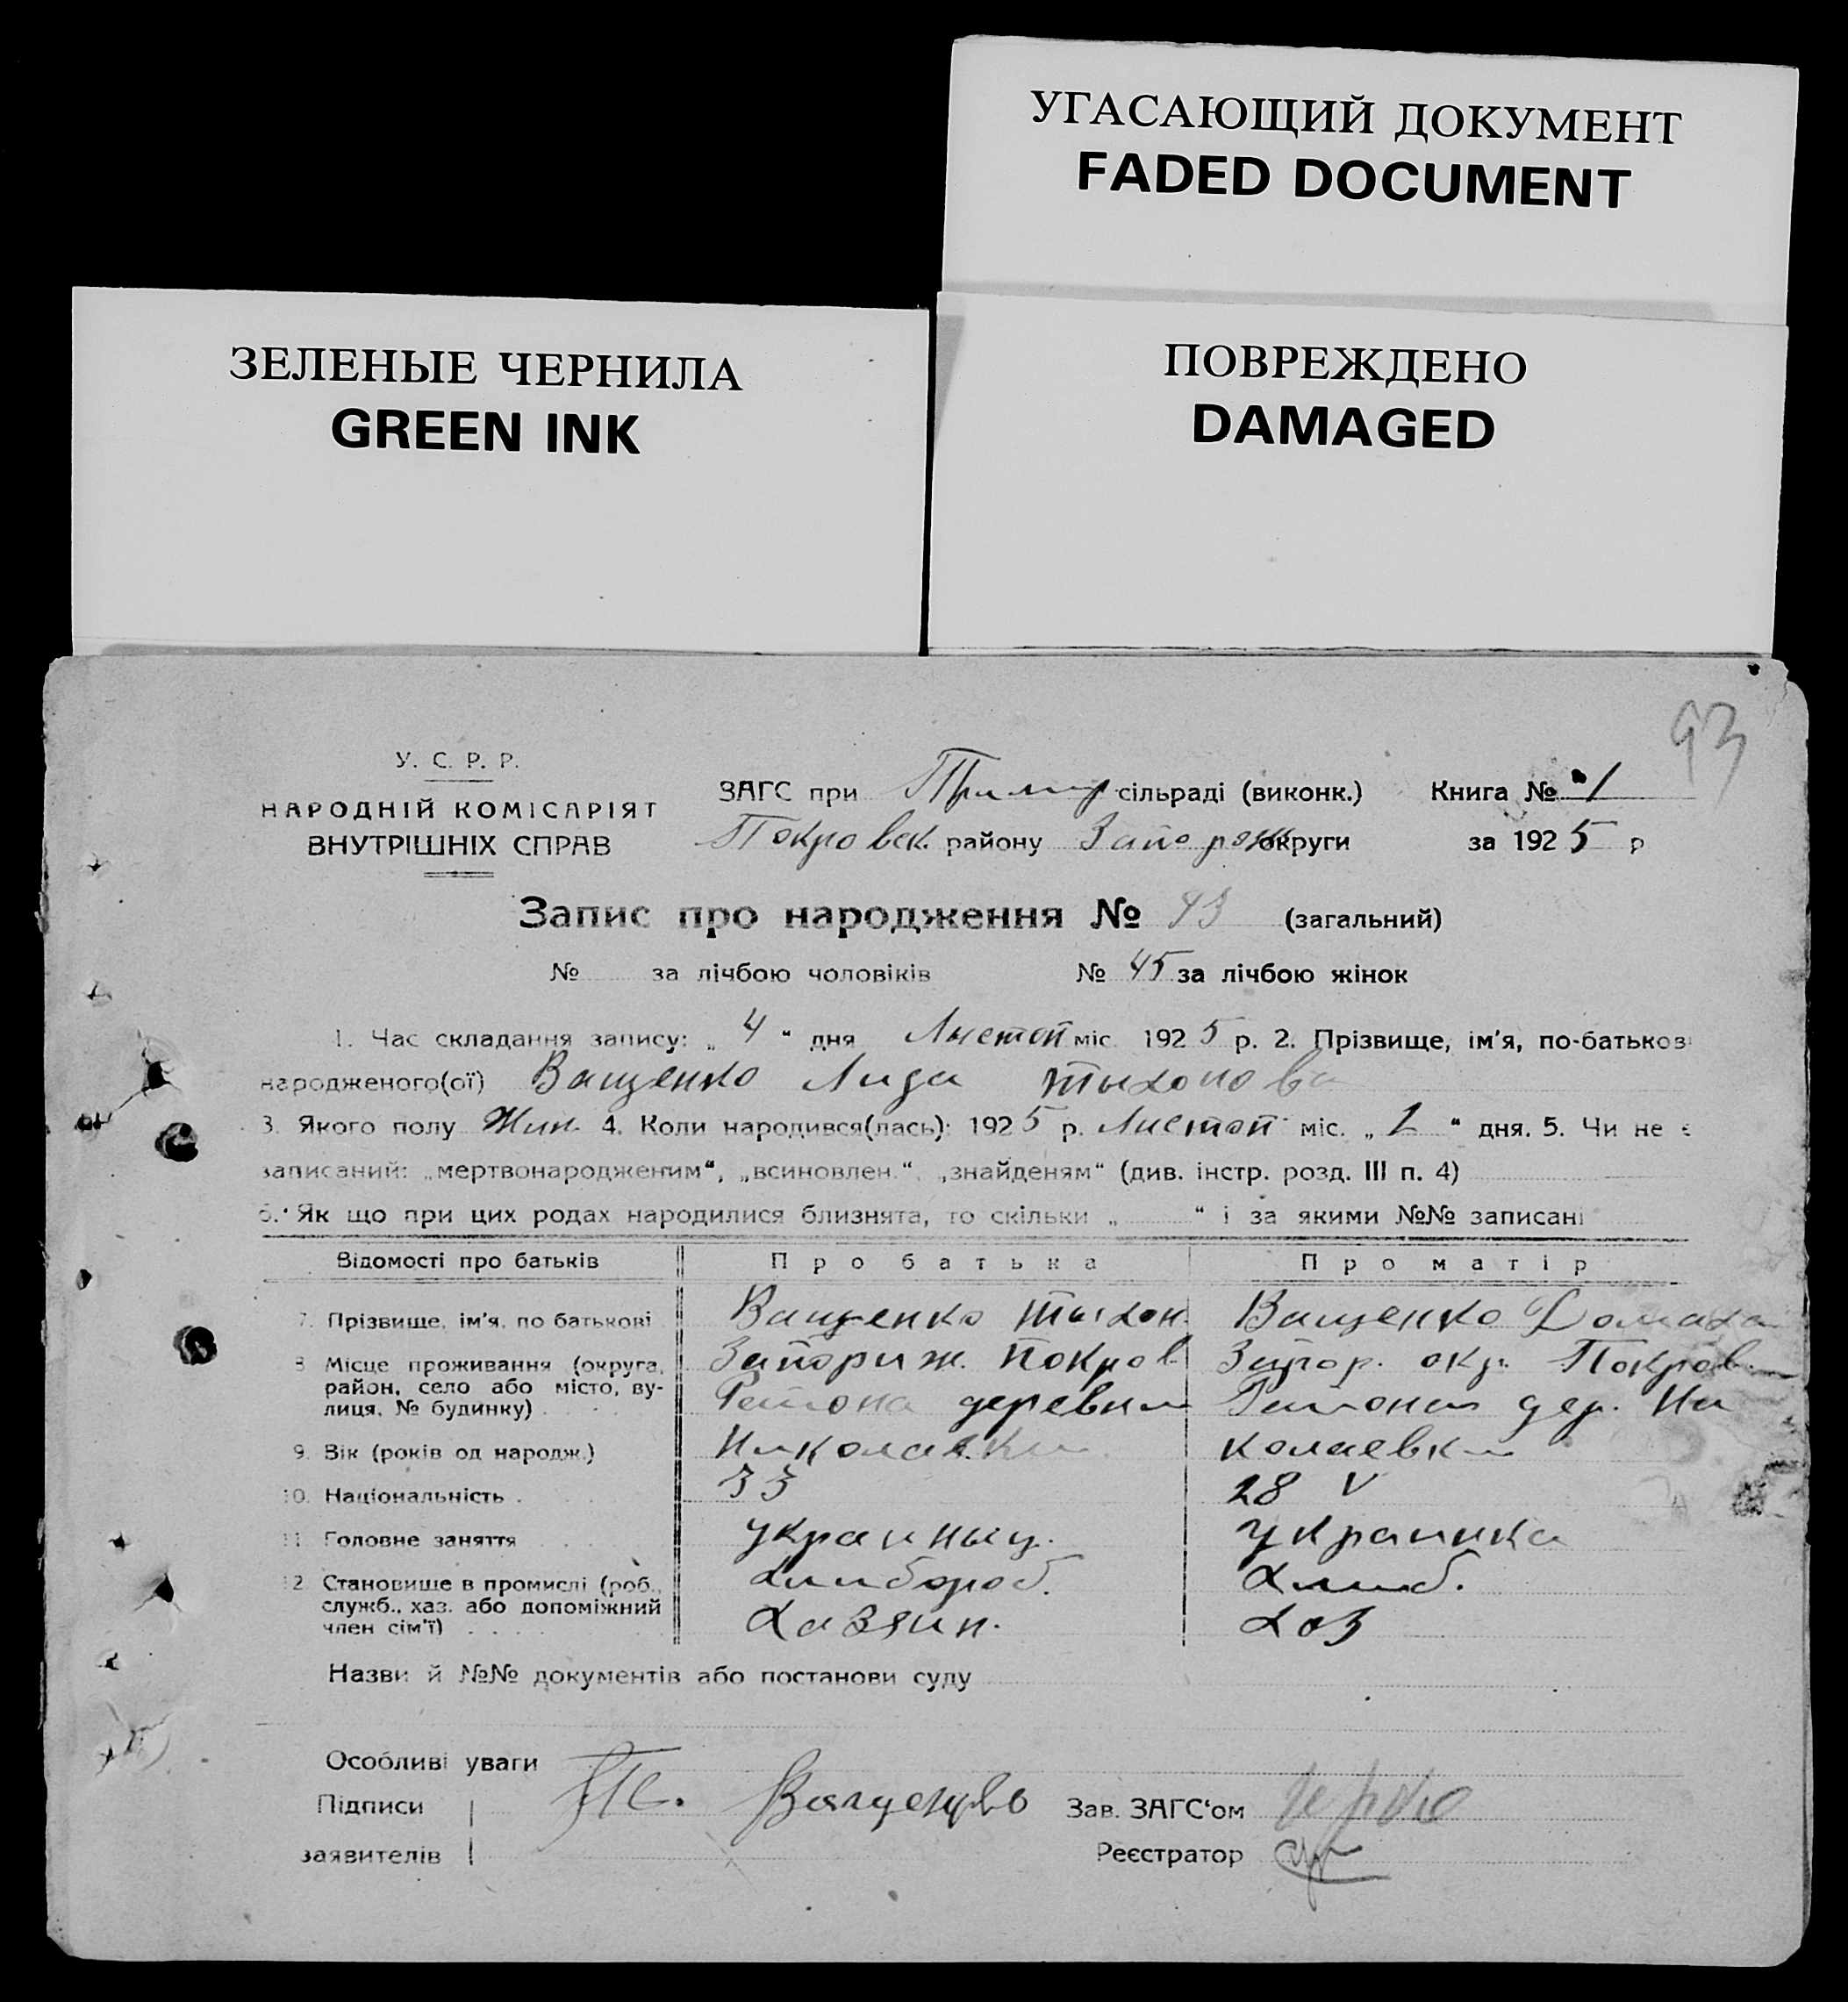 УГАСАЮЩИЙ ДОКУМЕНТ
FADED DOCUMENT
ЗЕЛЕНЫЕ ЧЕРНИЛА
GREEN INK
ПОВРЕЖДЕНО
DAMAGED
93
У. С. Р. Р.
НАРОДНІЙ КОМІСАРІЯТ
ВНУТРІШНІХ СПРАВ
ЗАГС при сільраді (виконк.) Книга № 1
Покровск. району Запорож округи за 1925 р
Запис про народження № 93 (загальний)
№ за лічбою чоловіків № 45 за лічбою жінок
1. Час складання запису: „ 4 “ дня Листоп міс. 1925 р. 2. Прізвище, ім'я, по-батьков
народженого(ої) Ващенко Лида Тыхонова
3. Якого полу Жин. 4. Коли народився(лась): 1925 р. Листоп міс. „ 2 “ дня. 5. Чи не є
записаний: „мертвонародженим“, „всиновлен.“, „знайденям“ (див. інстр. розд. III п. 4)
6. Як що при цих родах народилися близнята, то скільки „ “ і за якими №№ записані
Відомості про батьків Про батька Про матір
7. Прізвище, ім'я, по батькові Ващенко Тыхон. Ващенко Домаха
8 Місце проживання (округа, Запориж. Покров. Запор. окр. Покров.
район, село або місто, ву- Района деревни Района дер. Ни
лиця, № будинку)
9. Вік (років од народж.) Николаевки колаевки
33 28 V
10. Національність .
11. Головне заняття украиныц. украинка
12. Становище в промислі (роб., хлибороб. хлиб.
служб., хаз. або допоміжний Хазяин. Хоз
член сім'ї) . . . .
Назви й №№ документів або постанови суду
Особливі уваги
Підписи Ващенко Зав. ЗАГС'ом
заявителів Реєстратор